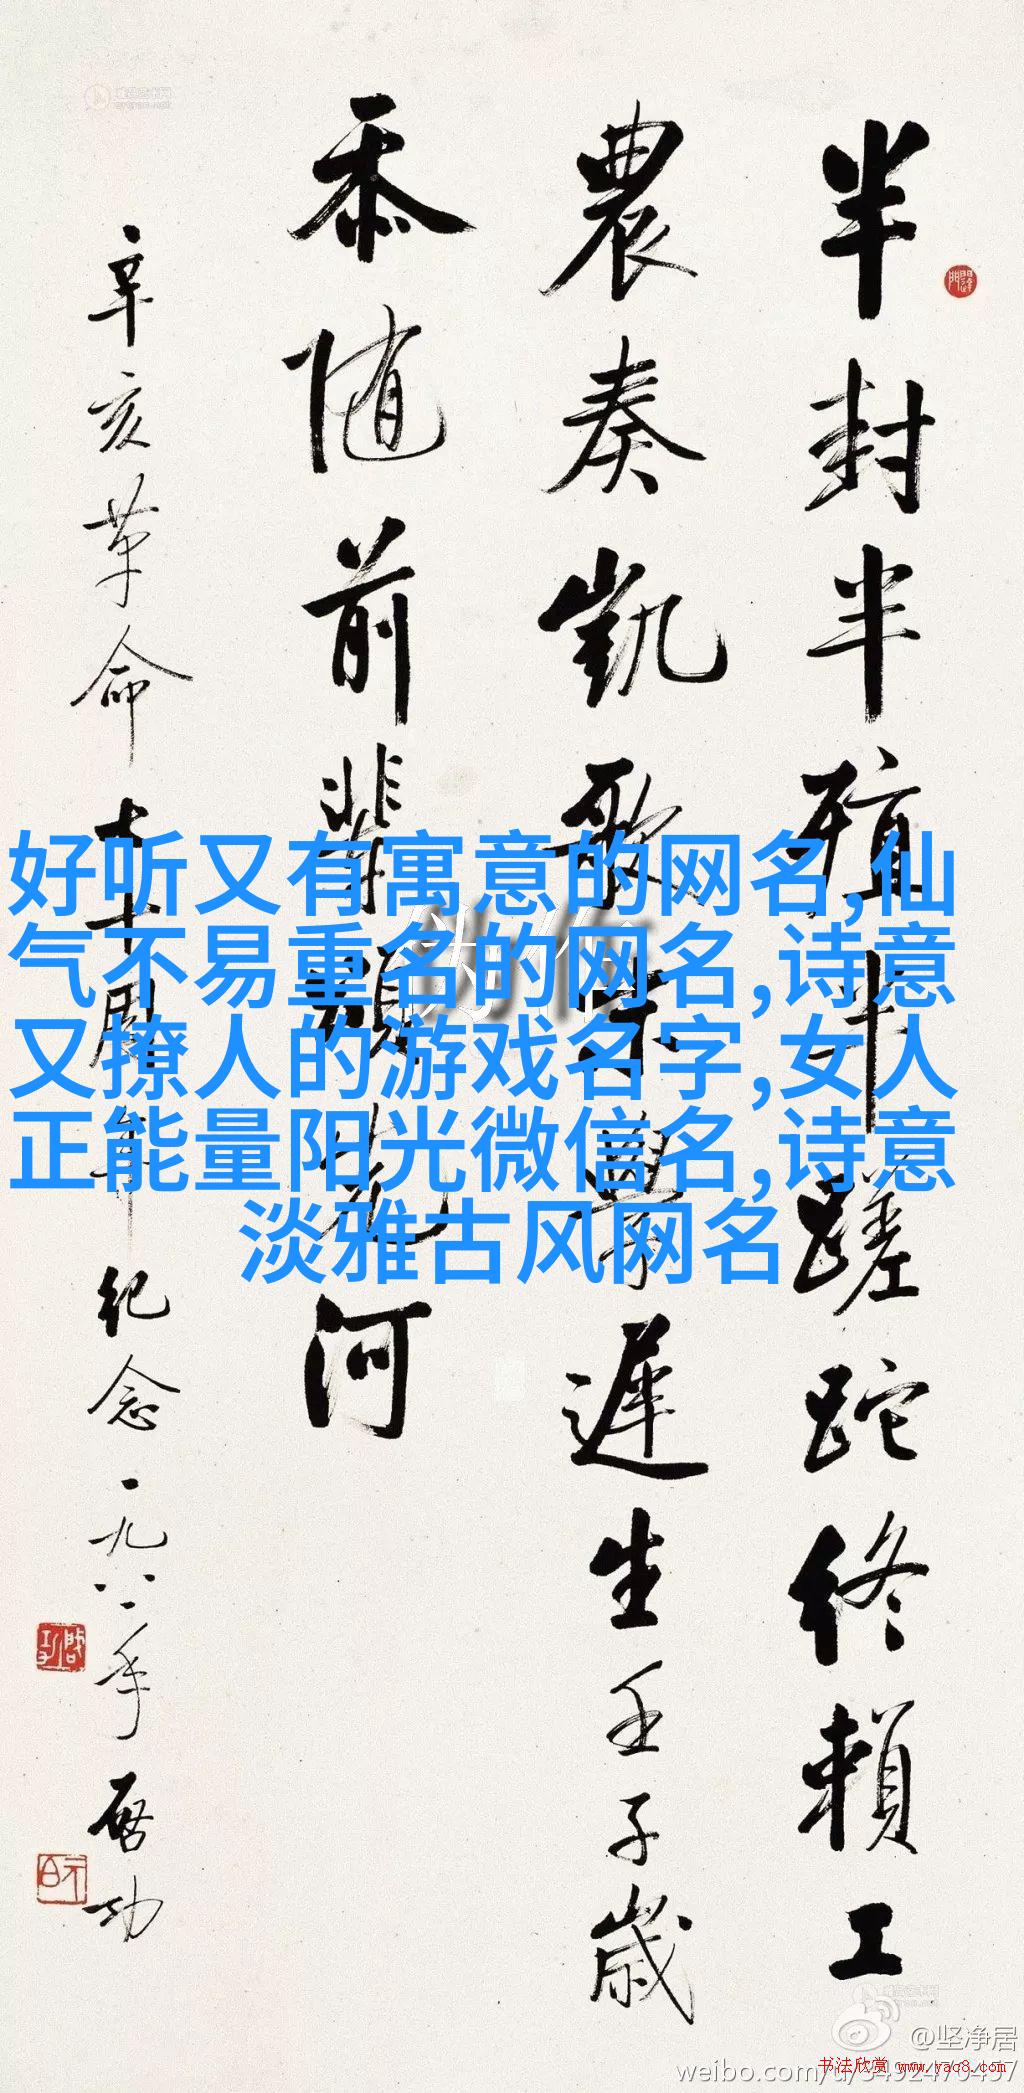 半封半殖半蹉跎終賴工
農奏凱歌末學遲生壬子歲
忝随前輩河
辛亥革命七十周年纪念一九八一年 啓功
好听又有寓意的网名,仙
气不易重名的网名,诗意
又撩人的游戏名字,女人
正能量阳光微信名,诗意
淡雅古风网名
@坚净居
书法欣赏 www.yac8.com